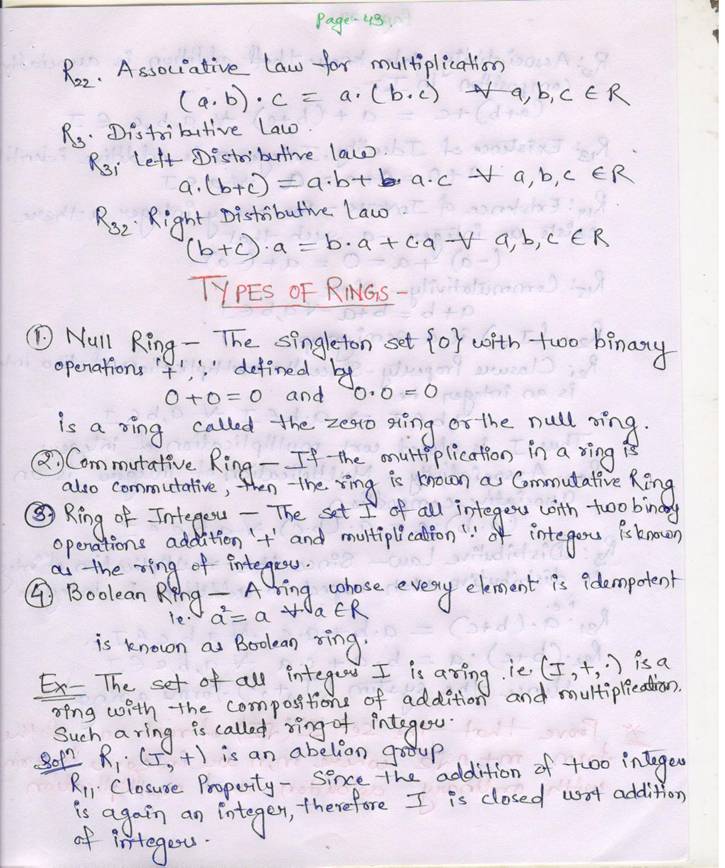 Page-43.
R22. Associative law for multiplication
(a.b).c = a.(b.c) ∀ a,b,c ∈ R
R3. Distributive Law.
R31, Left Distributive law.
a.(b+c) = a.b + a.c ∀ a,b,c ∈ R
R32. Right Distributive Law
(b+c).a = b.a + c.a ∀ a,b,c ∈ R
TYPES OF RINGS -
① Null Ring - The singleton set {0} with two binary
operations '+', '.' defined by
0+0=0 and 0.0=0
is a ring called the zero ring or the null ring.
② Commutative Ring - If the multiplication in a ring is
also commutative, then the ring is known as Commutative Ring
③ Ring of Integers - The set I of all integers with two binary
operations addition '+' and multiplication '.' of integers is known
as the ring of integers.
④ Boolean Ring - A ring whose every element is idempotent
ie. a²=a ∀ a ∈ R
is known as Boolean ring.
Ex- The set of all integers I is a ring ie. (I,+,.) is a
ring with the compositions of addition and multiplication.
Such a ring is called ring of integers.
Solⁿ R1. (I,+) is an abelian group
R11. Closure Property - Since the addition of two integers
is again an integer, therefore I is closed wrt addition
of integers.